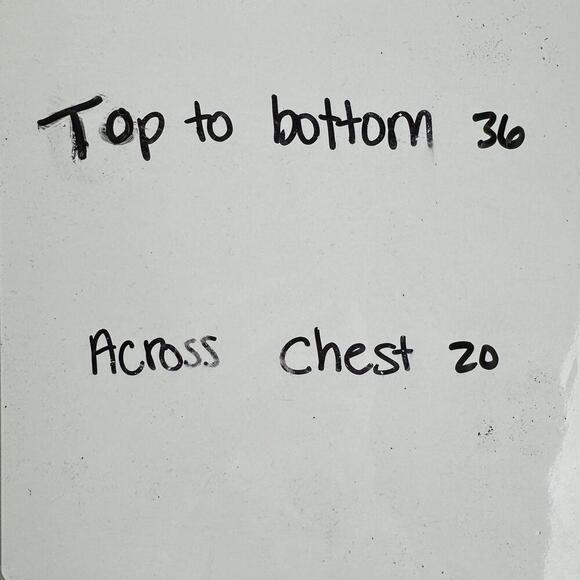 Top to bottom 36
Across Chest 20